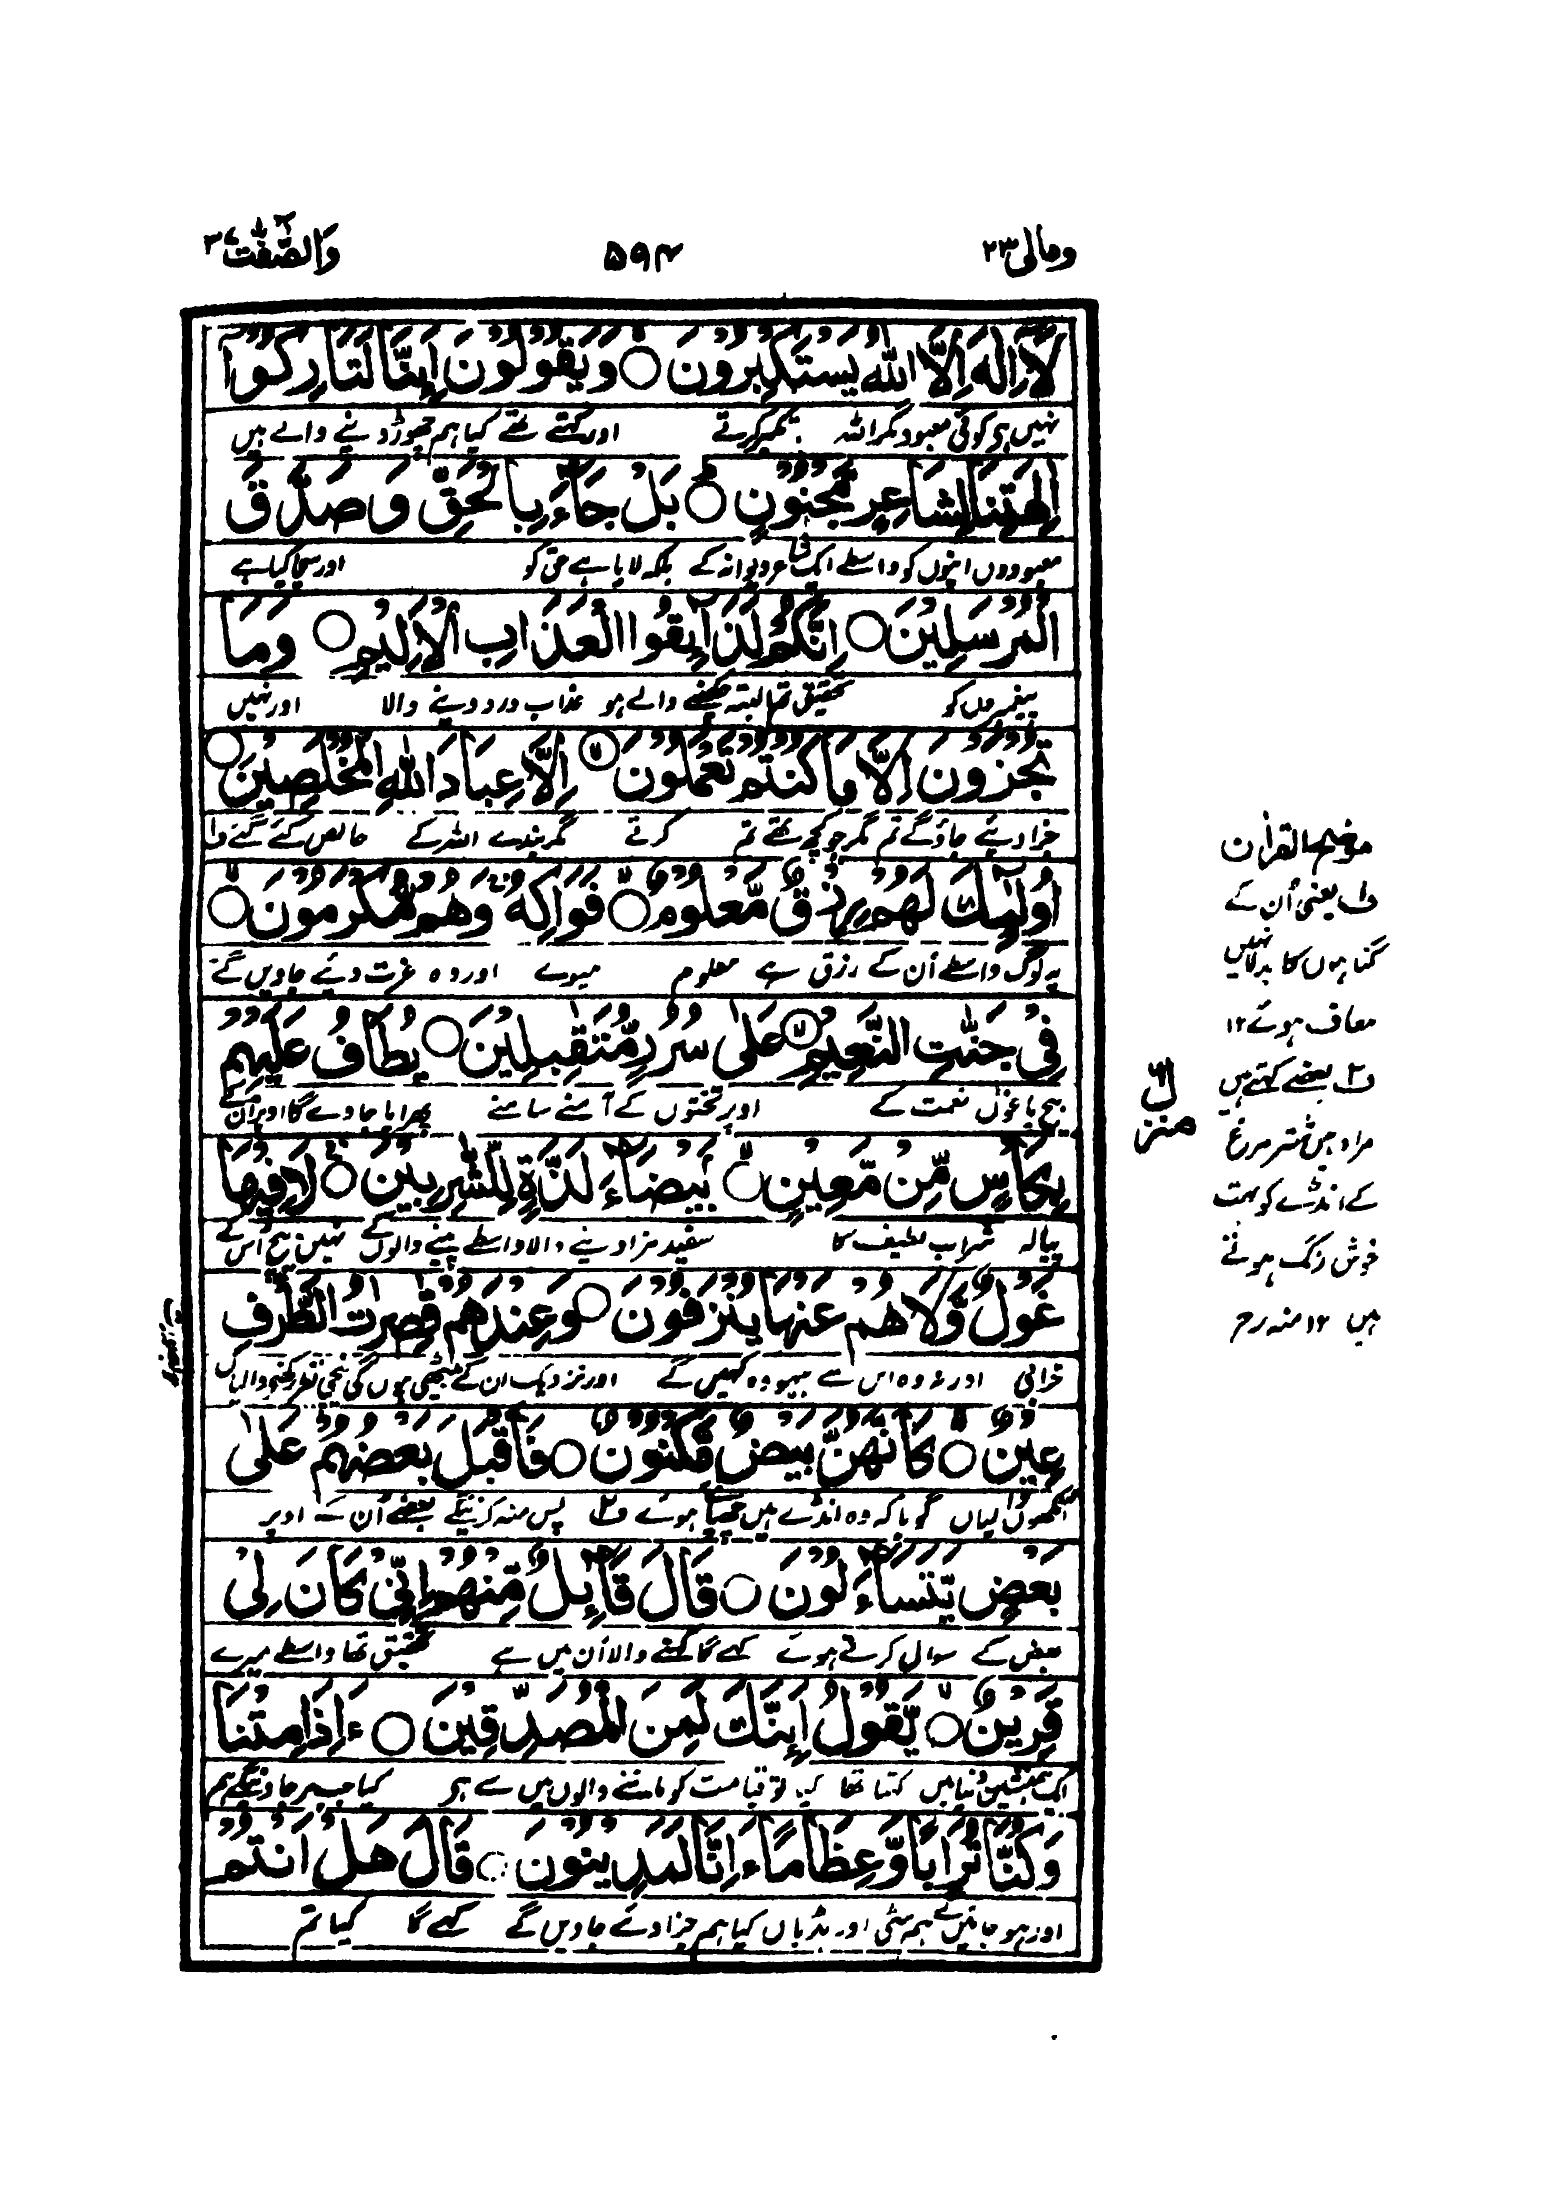 ومالی ۲۳
۵۹۴
وَالصّٰٓفّٰت ۳۷
لَآ اِلٰهَ اِلَّا اللّٰهُ يَسْتَكْبِرُوْنَ ○ وَيَقُوْلُوْنَ اَئِنَّا لَتَارِكُوْٓا
نہیں ہی کوئی معبود مگر اللہ تکبر کرتے اور کہتے تھے کیا ہم چھوڑ دینے والے ہیں
اٰلِهَتِنَا لِشَاعِرٍ مَّجْنُوْنٍ ○ بَلْ جَآءَ بِالْحَقِّ وَصَدَّقَ
معبودوں اپنوں کو واسطے ایک شاعر دیوانہ کے بلکہ لایا ہے حق کو اور سچا کیا ہے
الْمُرْسَلِيْنَ ○ اِنَّكُمْ لَذَآئِقُوا الْعَذَابِ الْاَلِيْمِ ○ وَمَا
پیغمبروں کو تحقیق تم البتہ چکھنے والے ہو عذاب درد دینے والا اور نہیں
تُجْزَوْنَ اِلَّا مَا كُنْتُمْ تَعْمَلُوْنَ ○ اِلَّا عِبَادَ اللّٰهِ الْمُخْلَصِيْنَ ○
جزا دیئے جاؤگے تم مگر جو کچھ تھے تم کرتے مگر بندے اللہ کے خالص کئے گئے ف۱
اُولٰٓئِكَ لَهُمْ رِزْقٌ مَّعْلُوْمٌ ○ فَوَاكِهُ وَهُمْ مُّكْرَمُوْنَ ○
یہ لوگ واسطے اُن کے رزق ہے معلوم میوے اور وہ عزت دئے جاویں گے
فِيْ جَنّٰتِ النَّعِيْمِ ○ عَلٰى سُرُرٍ مُّتَقٰبِلِيْنَ ○ يُطَافُ عَلَيْهِمْ
بیچ باغوں نعمت کے اوپر تختوں کے آمنے سامنے پھرایا جاوے گا اوپر اُن کے
بِكَاْسٍ مِّنْ مَّعِيْنٍ ○ بَيْضَآءَ لَذَّةٍ لِّلشّٰرِبِيْنَ ○ لَا فِيْهَا
پیالہ شراب لطیف کا سفید مزا دینے والا واسطے پینے والوں کے نہیں بیچ اُس کے
غَوْلٌ وَّلَا هُمْ عَنْهَا يُنْزَفُوْنَ ○ وَعِنْدَهُمْ قٰصِرٰتُ الطَّرْفِ
خرابی اور نہ وہ اس سے بیہودہ کہیں گے اور نزدیک ان کے بیٹھی ہوں گی نیچی نظر رکھنے والیاں
عِيْنٌ ○ كَاَنَّهُنَّ بَيْضٌ مَّكْنُوْنٌ ○ فَاَقْبَلَ بَعْضُهُمْ عَلٰى
آنکھوں لیاں گویا کہ وہ انڈے ہیں چھپائے ہوئے ف۲ پس منہ کرینگے بعضے اُن کے اوپر
بَعْضٍ يَّتَسَآءَلُوْنَ ○ قَالَ قَآئِلٌ مِّنْهُمْ اِنِّيْ كَانَ لِيْ
بعض کے سوال کرتے ہوئے کہے گا کہنے والا اُن میں سے تحقیق تھا واسطے میرے
قَرِيْنٌ ○ يَّقُوْلُ اَئِنَّكَ لَمِنَ الْمُصَدِّقِيْنَ ○ ءَاِذَا مِتْنَا
ایک ہمنشین دنیا میں کہتا تھا کیا تو قیامت کو ماننے والوں میں سے ہی کیا جب مر جاوینگے ہم
وَكُنَّا تُرَابًا وَّعِظَامًا ءَاِنَّا لَمَدِيْنُوْنَ ○ قَالَ هَلْ اَنْتُمْ
اور ہو جائیں گے ہم مٹی اور ہڈیاں کیا ہم جزا دئے جاویں گے کہے گا کیا تم
موضح القرآن
ف۱ یعنی اُن کے
گناہوں کا بدلا نہیں
معاف ہوئے ۱۲
ف۲ بعضے کہتے ہیں
مراد ہیں شتر مرغ
کے انڈے کو بہت
خوش رنگ ہوتے
ہیں ۱۲ منہ رح
منزل ۶